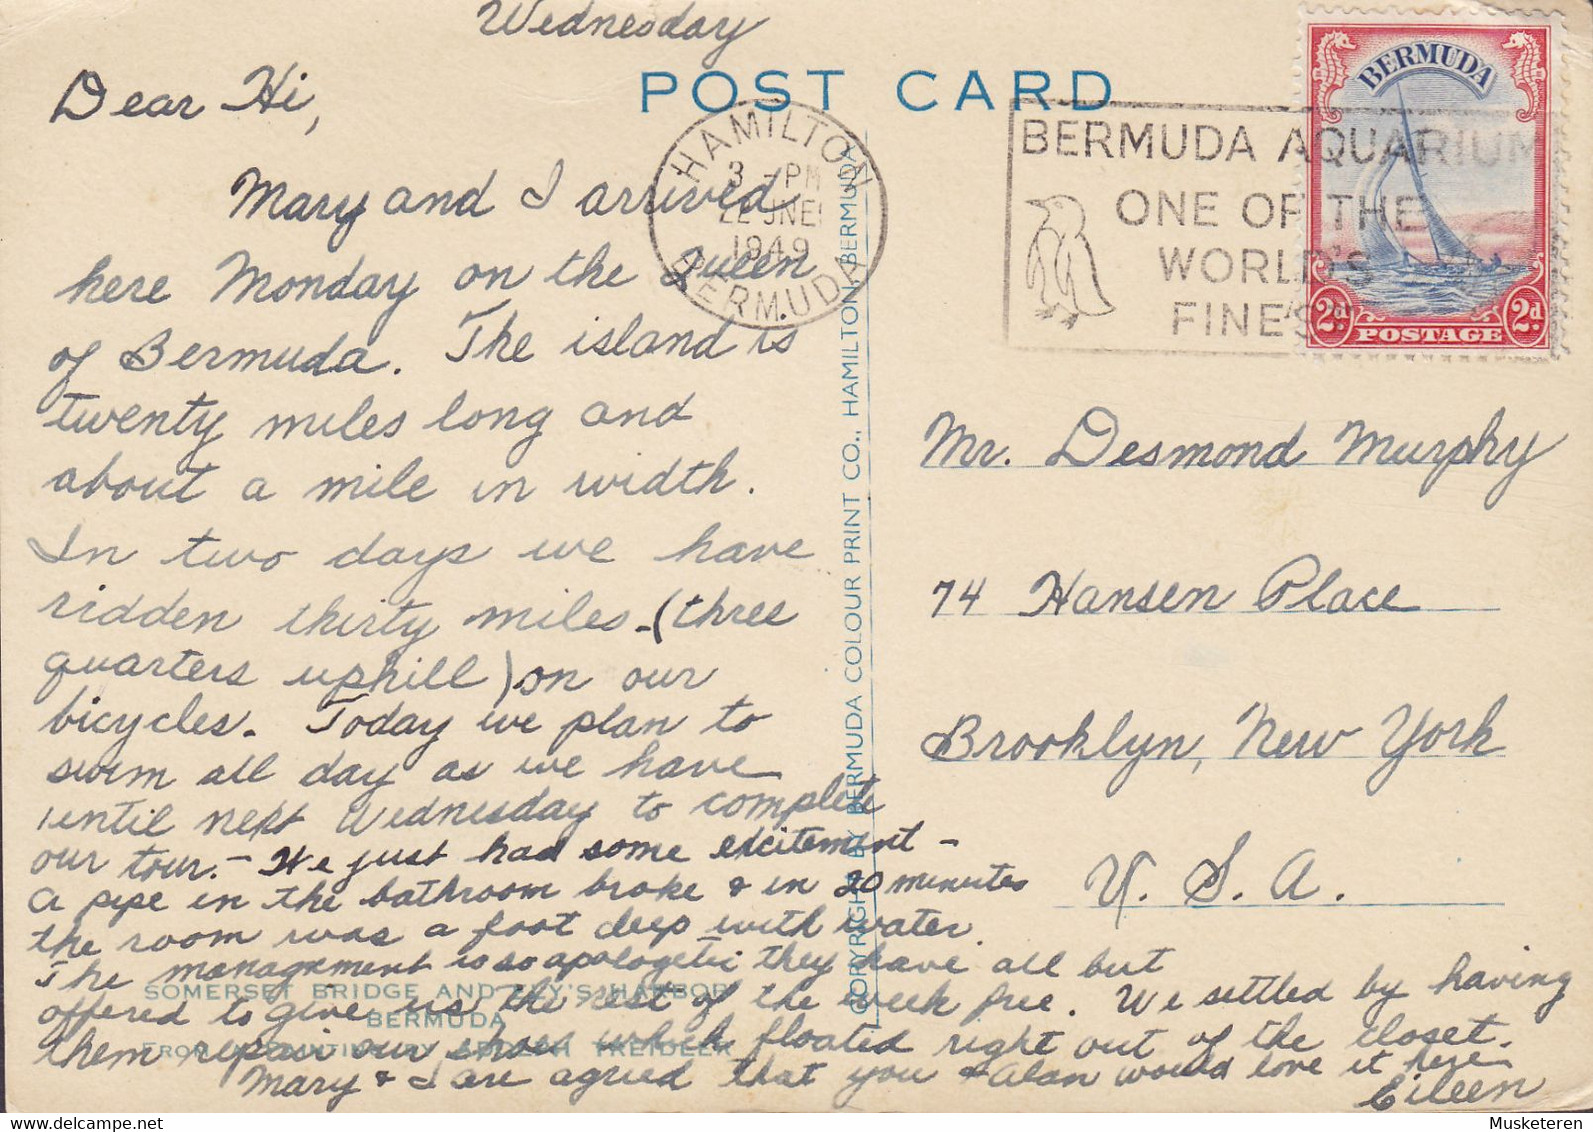 Wednesday
Dear Hi,
Mary and I arrived
here Monday on the Queen
of Bermuda. The island is
twenty miles long and
about a mile in width.
In two days we have
ridden thirty miles-(three
quarters uphill) on our
bicycles. Today we plan to
swim all day as we have
until next Wednesday to complete
our tour. - We just had some excitement -
a pipe in the bathroom broke & in 20 minutes
the room was a foot deep with water.
The management is so apologetic they have all but
offered to give us the rest of the week free. We settled by having
them repair our shoes which floated right out of the closet.
Mary & I are agreed that you & Alan would love it here
Eileen
SOMERSET BRIDGE AND ELY'S HARBOR
BERMUDA
FROM A PAINTING BY ADOLPH TREIDLER
POST CARD
COPYRIGHT BY BERMUDA COLOUR PRINT CO., HAMILTON, BERMUDA
HAMILTON
3 - PM
22 JNE
1949
BERMUDA
BERMUDA AQUARIUM
ONE OF THE
WORLD'S
FINEST
BERMUDA
2d 2d
POSTAGE
Mr. Desmond Murphy
74 Hansen Place
Brooklyn, New York
U. S. A.
Musketeren